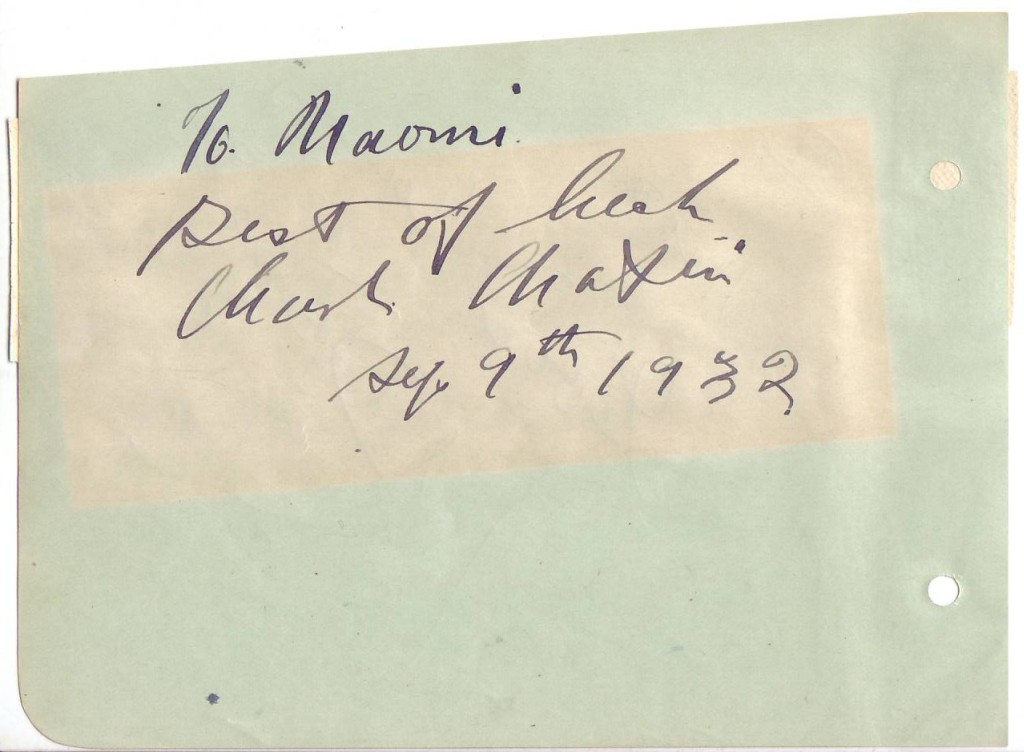 To. Naomi.
Best of luck
Sep 9th 1932